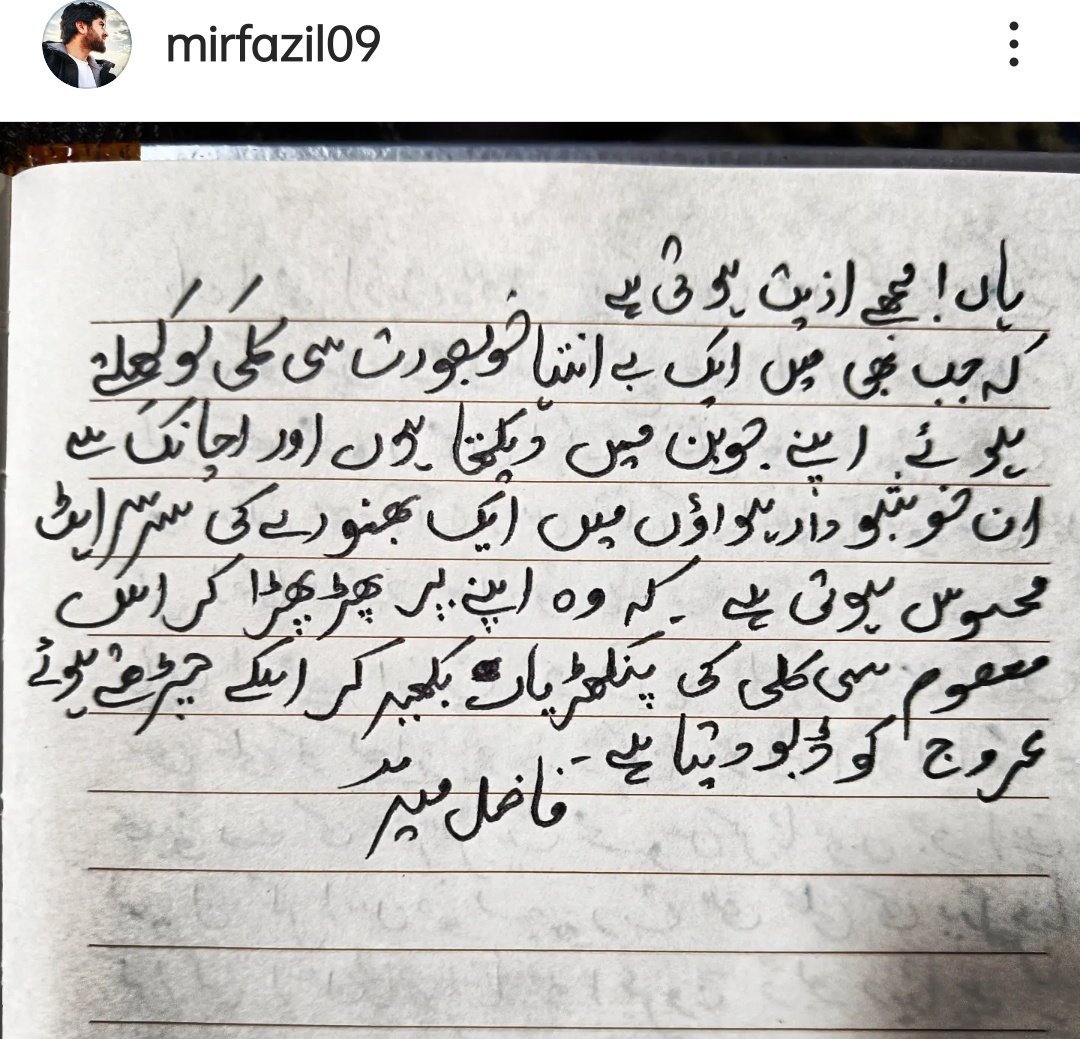 mirfazil09
ہاں! مجھے اذیت ہوتی ہے
کہ جب بھی میں ایک بے انتہا خوبصورت سی کلی کو کھلتے
ہوئے اپنے جوبن میں دیکھتا ہوں اور اچانک سے
ان خوشبودار ہواؤں میں ایک بھنورے کی سرسراہٹ
محسوس ہوتی ہے ۔ کہ وہ اپنے پر پھڑپھڑا کر اس
معصوم سی کلی کی پنکھڑیاں بکھیر کر اسکے چڑھتے ہوئے
عروج کو ڈبو دیتا ہے ۔
فاضل میر